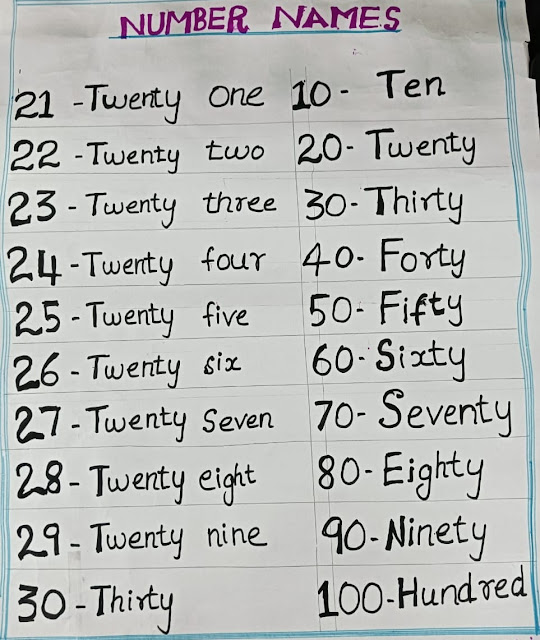 NUMBER NAMES
21 - Twenty One
22 - Twenty two
23 - Twenty three
24 - Twenty four
25 - Twenty five
26 - Twenty six
27 - Twenty Seven
28 - Twenty eight
29 - Twenty nine
30 - Thirty
10 - Ten
20 - Twenty
30 - Thirty
40 - Forty
50 - Fifty
60 - Sixty
70 - Seventy
80 - Eighty
90 - Ninety
100 - Hundred